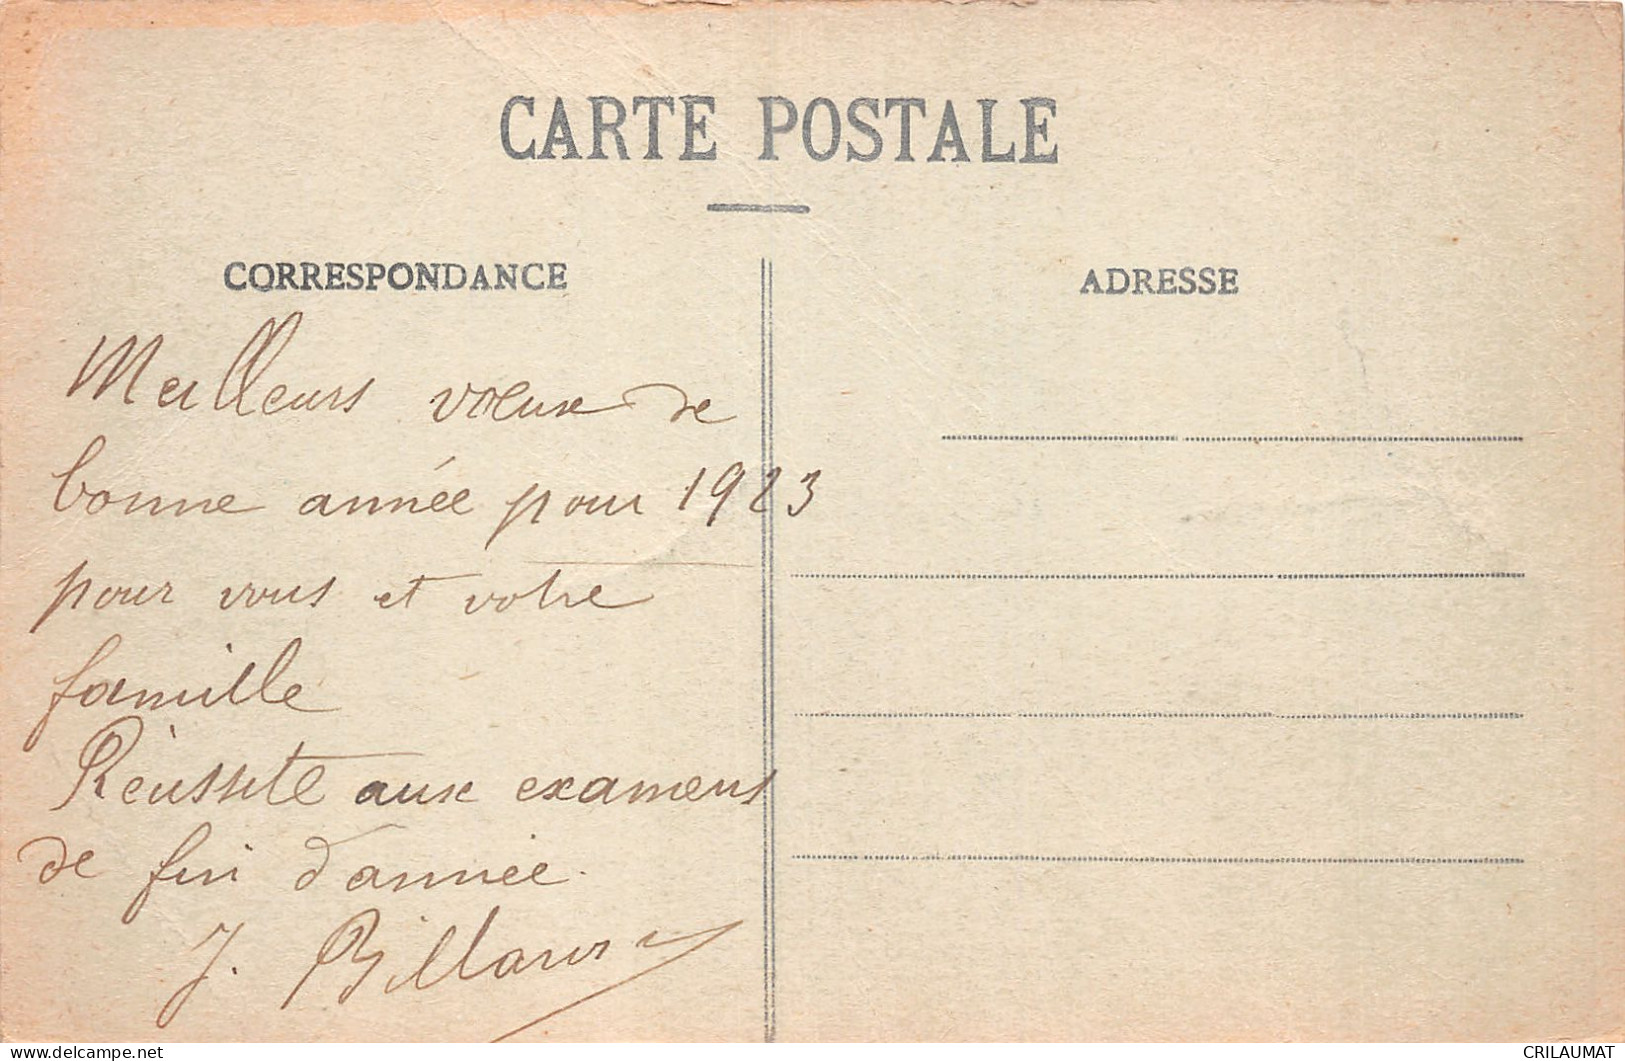 CARTE POSTALE
CORRESPONDANCE
ADRESSE
Meilleurs vœux de
bonne année pour 1923
pour vous et votre
famille
Réussite aux examens
de fin d'année.
J.
delcampe.net
CRILAUMAT